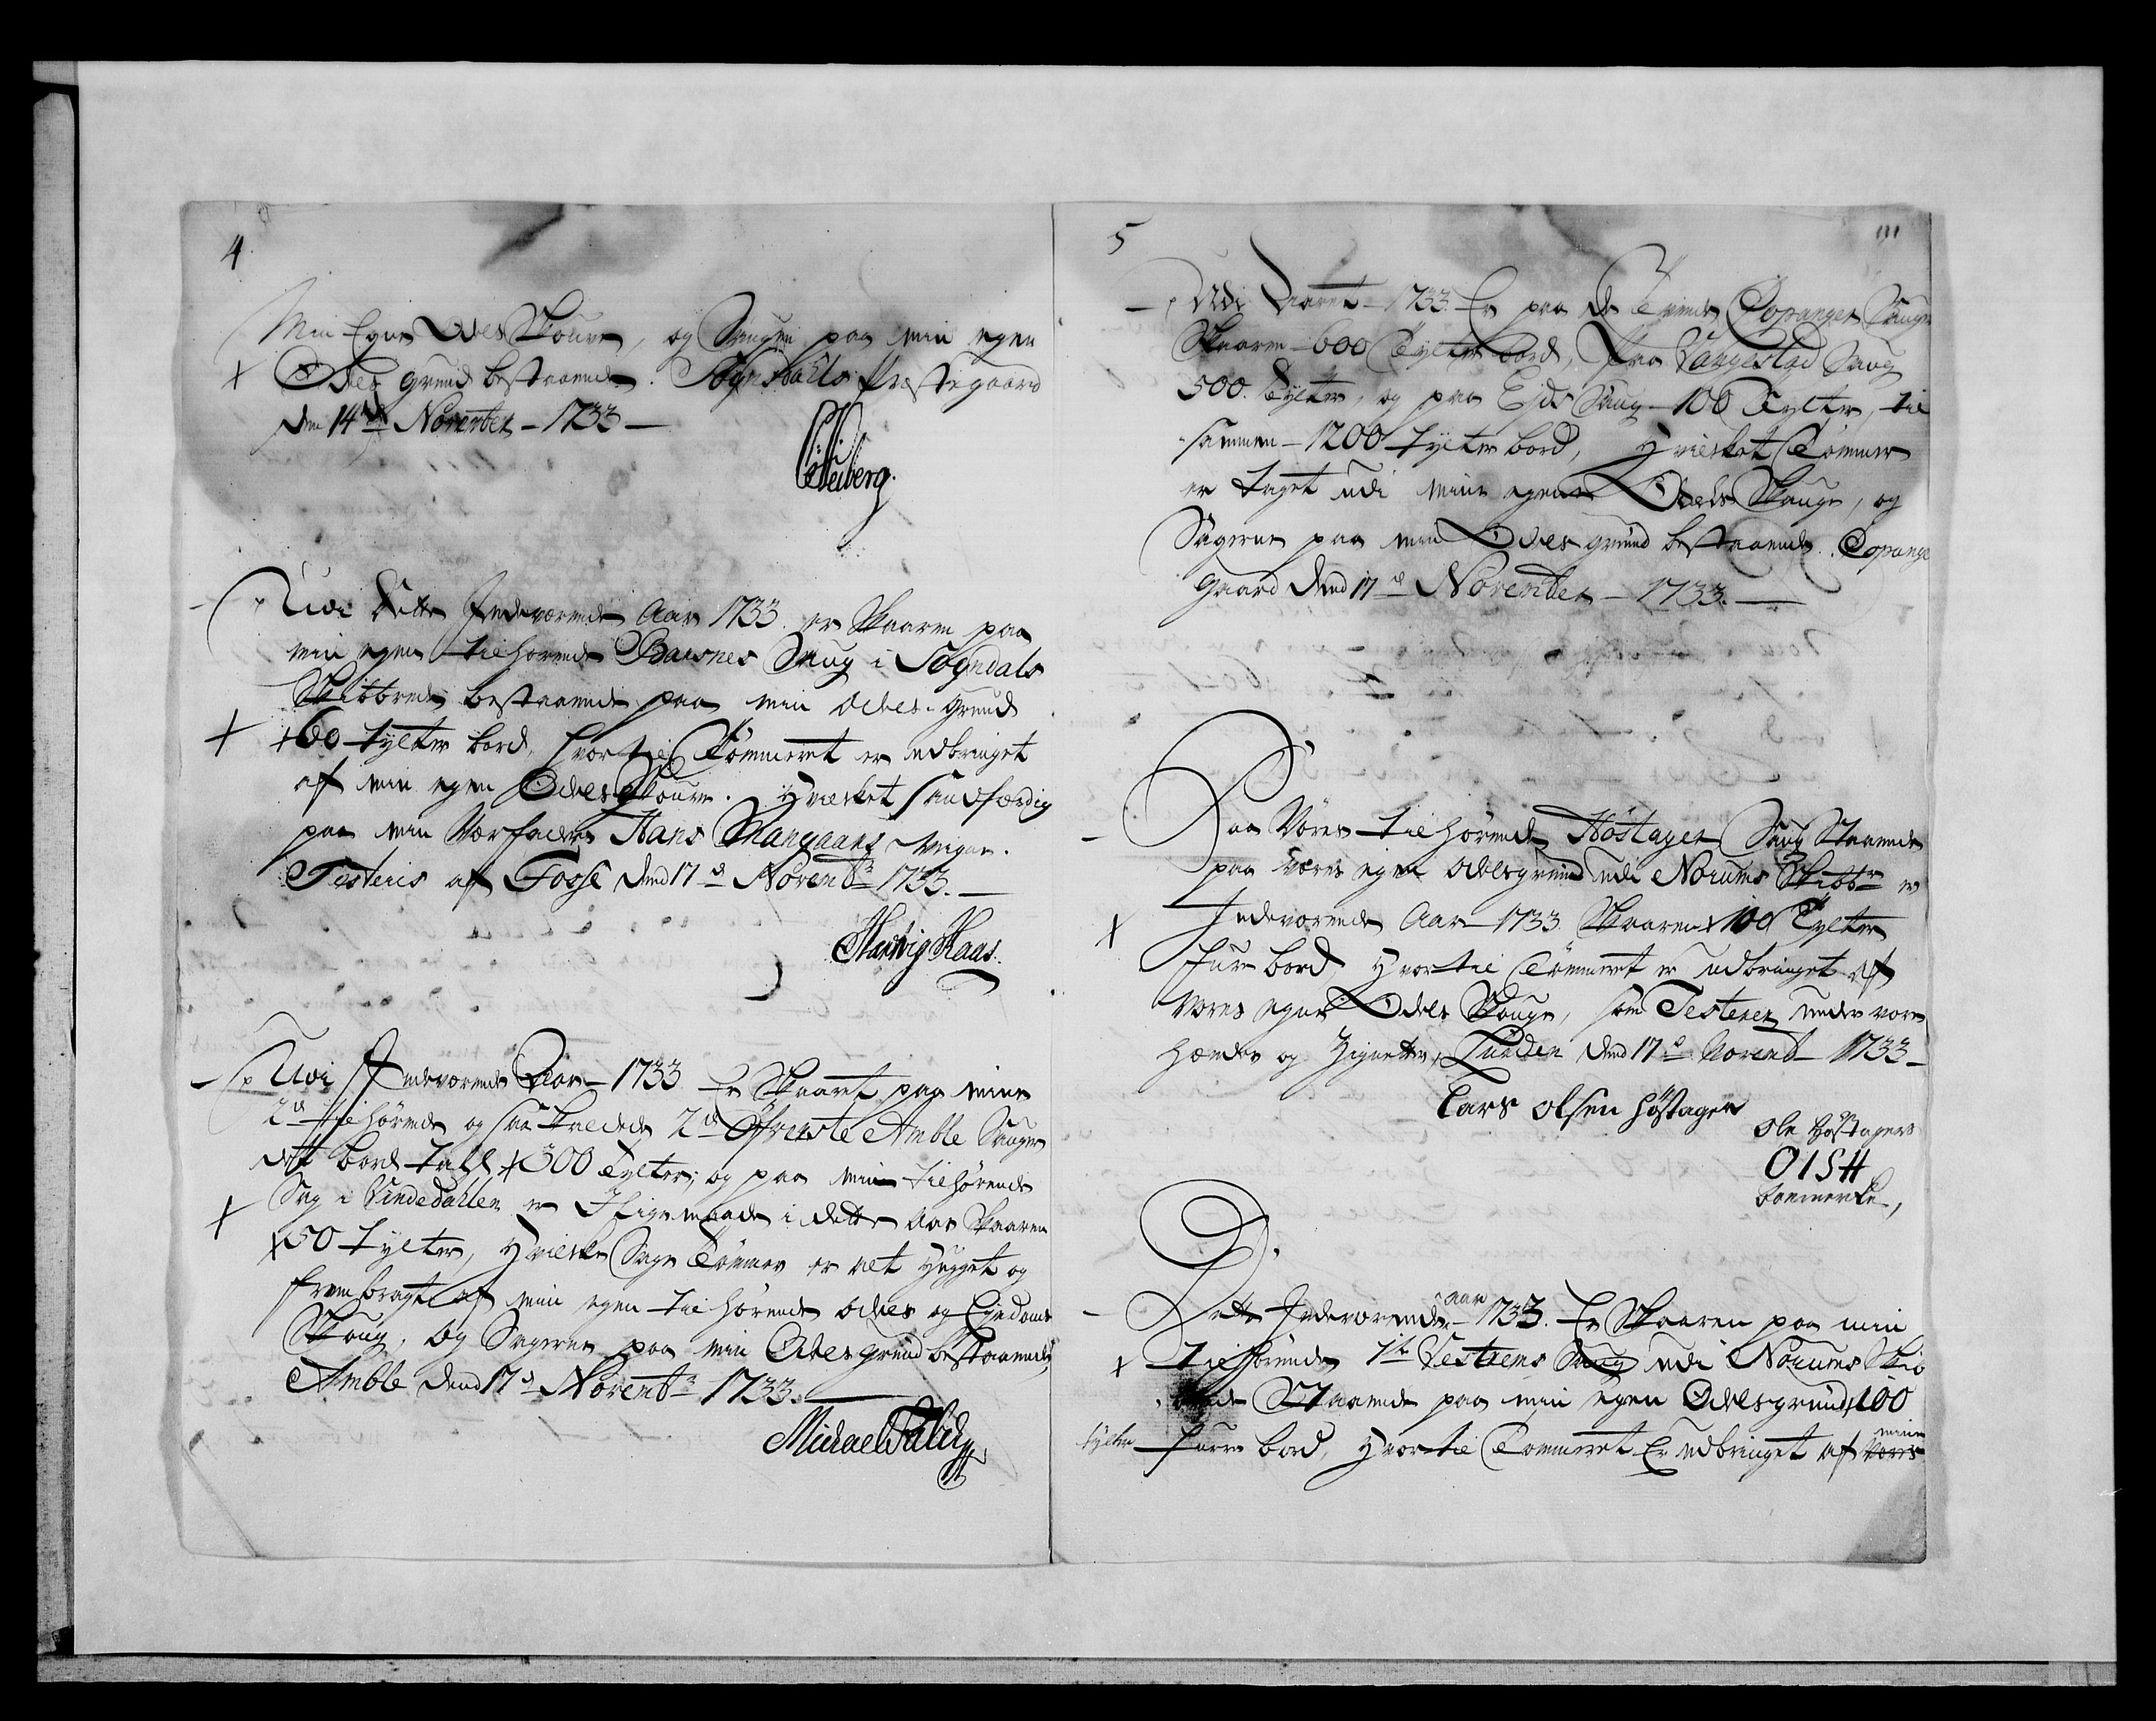 4
Min Egne Odels Skouve, og Saugen paa min egen
Odels grund bestaaende. Sogndahls Præstegaard
den 14de November - 1733 -
Heiberg.
Udi dette Indeværende Aar 1733 er Skaaren paa
min egen tilhørende Barsnes Saug i Sogndals
Skibbrede bestaaende paa min Odels grund
+ 60 tylter bord, hvortil Tømmeret er udbringet
af min egen Odels Skouve. Hvilket sandfærdig
paa min Værfaders Hans Vangaans veigne
Testeris af Fosse dend 17de Novembr 1733. -
Hartvig Kaas.
Udi Indeværende Aar - 1733 Er Skaaret paa mine
2de tilhørende og saa kaldede 2de Øfverste Amble Sauger
dett bord tall + 300 Tylter; og paa min tilhørende
Sag i Vindedahlen er I lige maade i dette Aar Skaaren
+ 50 Tylter, Hvilke Sage Tømmer er alt Hugget og
frembragt af min egen tilhørende Odels og Eyedoms
Skoug, og Sagerne paa min Odels grund bestaaende,
Amble dend 17de Novembr 1733. -
Michael Falck
5
Udi Aaret - 1733 Er paa de tvende Copanger Sauger
Skaaren - 600 Tylter bord, Paa Vangestad Saug
500. Tylter, og paa Eids Saug - 100 Tylter, til
sammen - 1200 Tylter bord, Hvilket Tømmer
er taget udi mine egene Odels Skauge, og
Sagerne paa min Odels grund bestaaende. Copanger
Gaard dend 17de November - 1733. -
Paa Vores tilhørende Høstager Saug Staaende
paa vores egen Odels grund udi Norums Skibbr er
Indeværende Aar - 1733 Skaaren + 100 Tylter
furre bord, Hvortil Tømmeret er udbringet af
Vores egne Odels Skouge, som Testerer under vore
Hænder og Zigneter, Lunden dend 17de Novembr 1733 -
Lars Olsen Høstager
Ole Høstagers
O I S H
boemerke,
Dette Indeværende aar 1733. Er Skaaren paa min
tilhørende Vestrems Saug udi Norums Skib
brede Staaende paa min egen Odels grund, + 100
tylter furre bord, Hvortil Tømmeret Er udbringet af mine